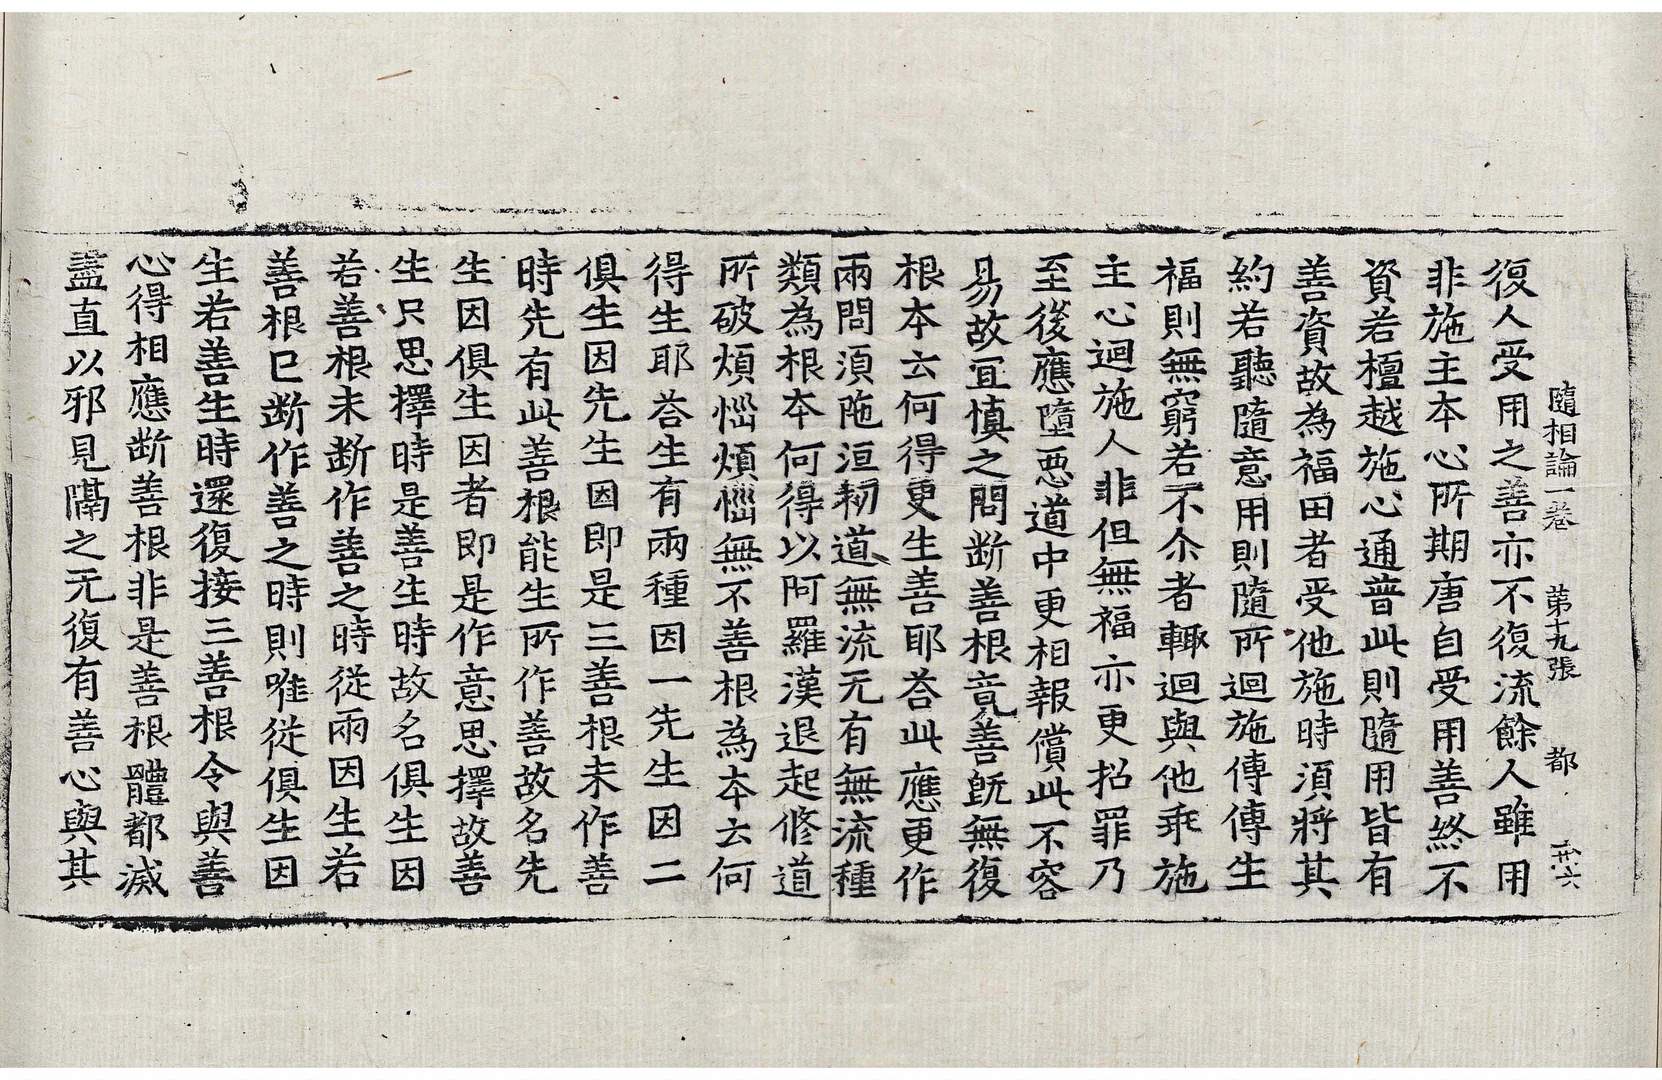 隨相論一卷 第十九張 都 六
復人受用之善亦不復流餘人雖用
非施主本心所期唐自受用善終不
資若檀越施心通普此則隨用皆有
善資故為福田者受他施時須將其
約若聽隨意用則隨所迴施傳傳生
福則無窮若不尒者輒迴與他乖施
主心迴施人非但無福亦更招罪乃
至後應墮惡道中更相報償此不容
易故宜慎之問断善根竟善旣無復
根本云何得更生善耶荅此應更作
兩問須陁洹初道無流无有無流種
類為根本何得以阿羅漢退起修道
所破煩惱煩惱無不善根為本云何
得生耶荅生有兩種因一先生因二
俱生因先生因即是三善根未作善
時先有此善根能生所作善故名先
生因俱生因者即是作意思擇故善
生只思擇時是善生時故名俱生因
若善根未断作善之時從兩因生若
善根已断作善之時則唯從俱生因
生若善生時還復接三善根令與善
心得相應断善根非是善根體都滅
盡直以邪見隔之无復有善心與其